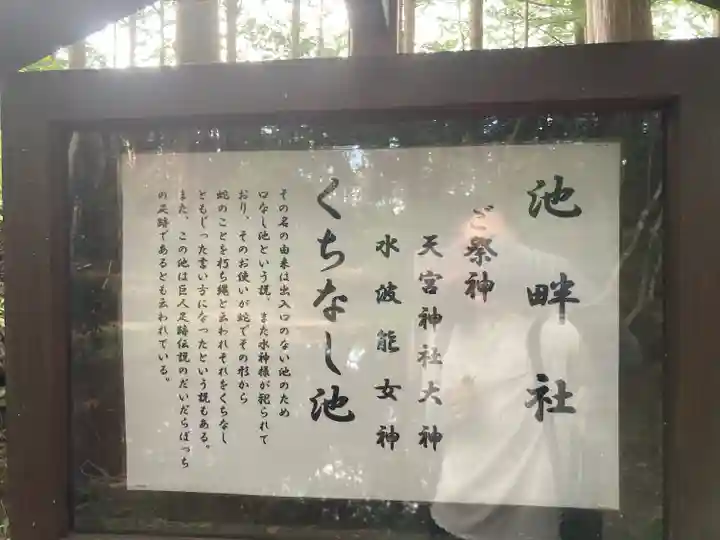 池畔社
ご祭神
天宮神社大神
水波能女神
くちなし池
その名の由来は出入口のない池のため
口なし池という説、また水神様が祀られて
おり、そのお使いが蛇でその形から
蛇のことを打ち縄と云われそれをくちなし
ともじった言い方になったという説もある。
また、この池は巨人足跡伝説のだいだらぼっち
の足跡であるとも云われている。